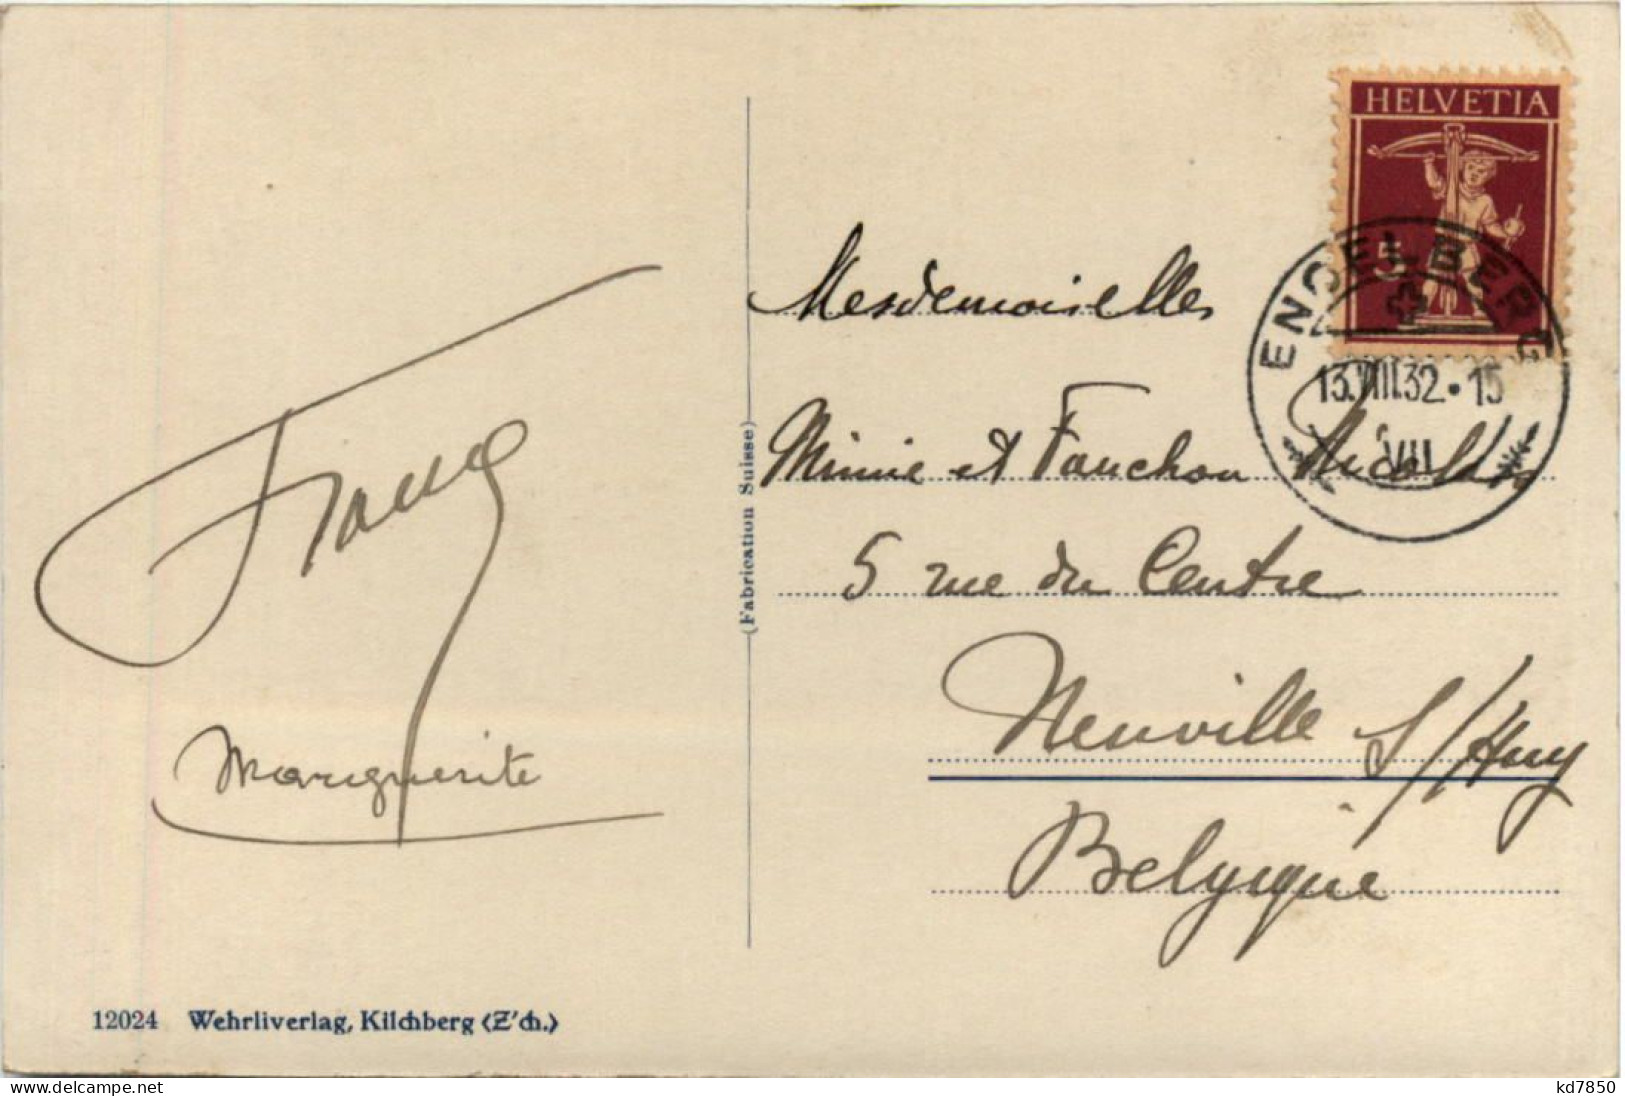 HELVETIA
5
ENGELBERG
13.VIII.32.15
VIII
Mesdemoiselles
Minnie et Fanchon
5 rue du Centre
Neuville s/Huy
Belgique
(Fabrication Suisse)
Marguerite
12024 Wehrliverlag, Kilchberg (Z'ch.)
delcampe.net
kd7850